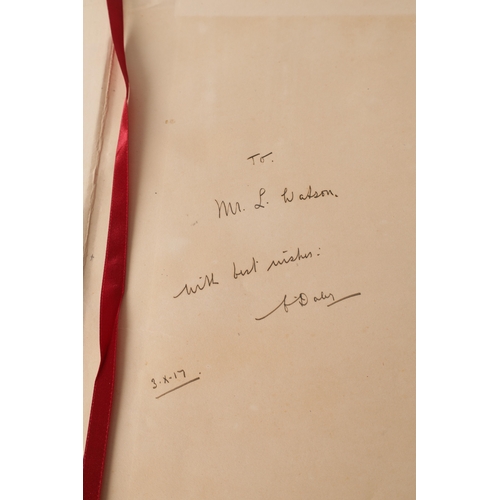 To.
Mr. L. Watson.
with best wishes:
C Daly
3.X.17.